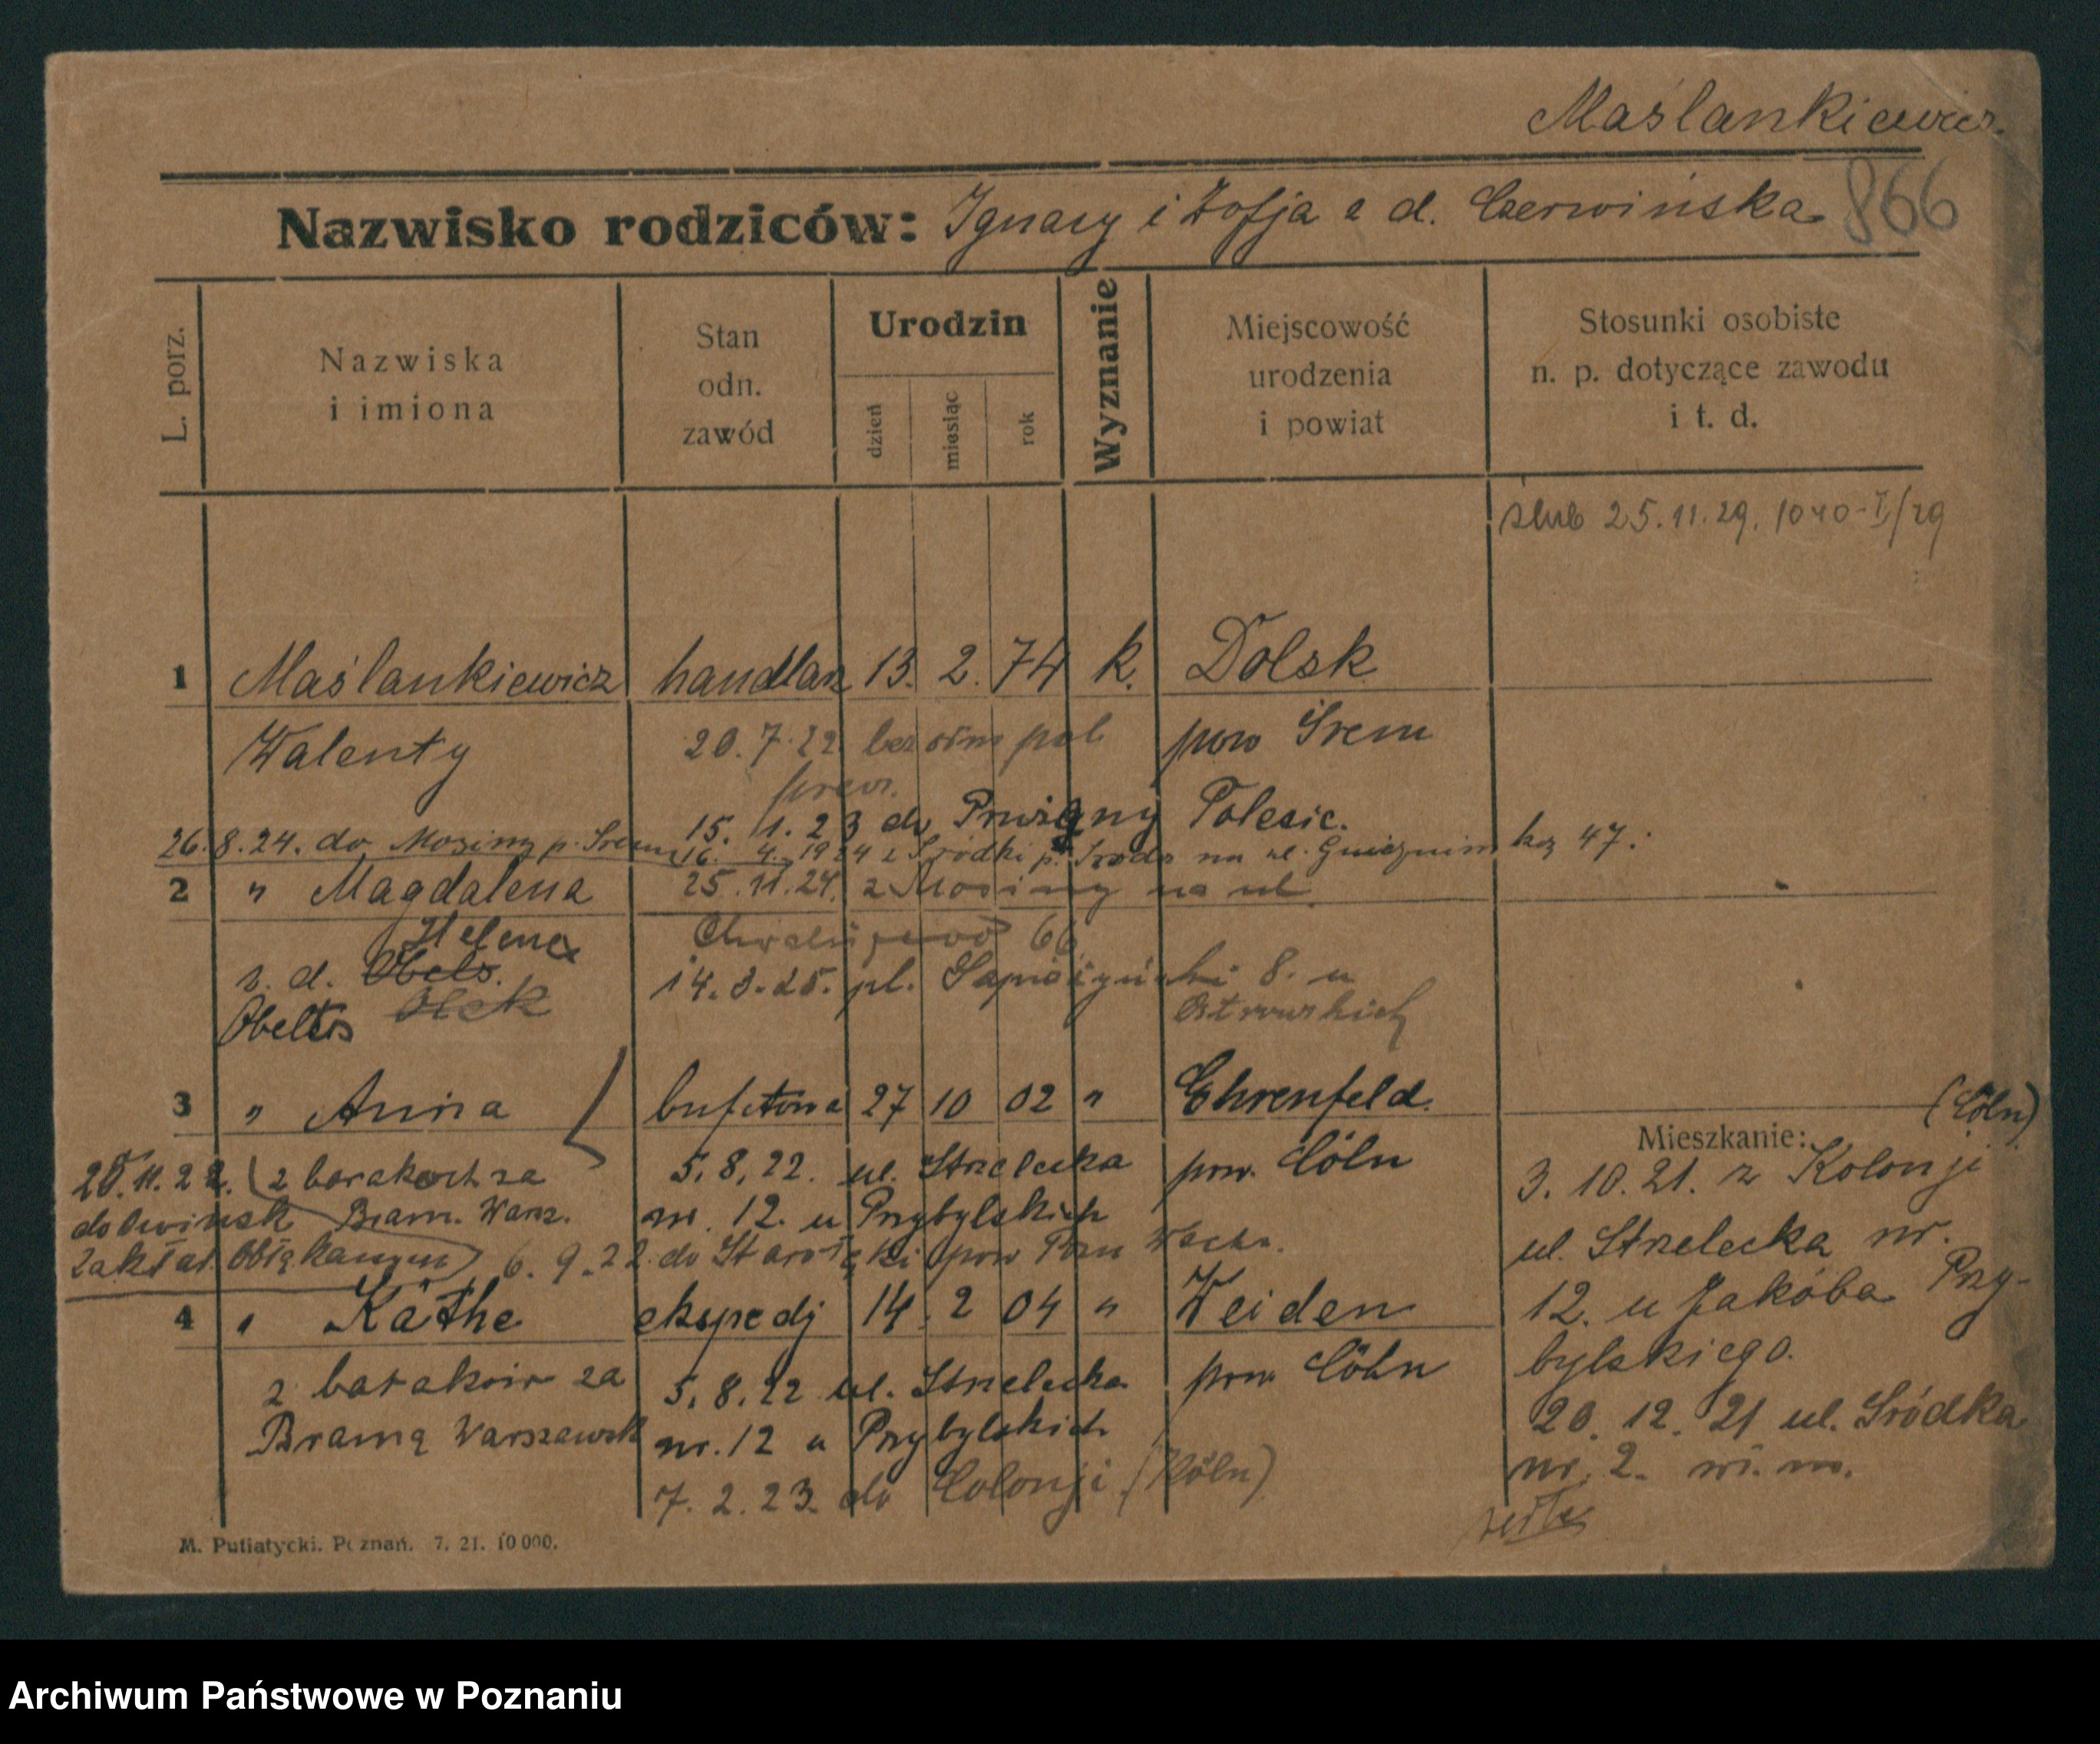 Maślankiewicz.
866
Nazwisko rodziców: Ignacy i Zofja z d. Czerwińska
L. porz.
Nazwiska
i imiona
Stan
odn.
zawód
Urodzin
dzień
miesiąc
rok
Wyznanie
Miejscowość
urodzenia
i powiat
Stosunki osobiste
n. p. dotyczące zawodu
i t. d.
ślub 25.11.29. 1040-I/29
1 Maślankiewicz handlarz 13. 2. 74 k. Dolsk
Walenty 20.7.22 pow Śrem
15. 1. 23 do Polesie.
26.8.24. do Mosiny p. Śrem 16. 4. 1924 z Śródki p. Środa na ul. 47.
2 " Magdalena 25.11.24. z Mosiny na ul.
Helena 66
z. d. Obels. 14.3.25. pl. 8. u
Obelts Olek Ostrowskich
3 " Anna bufetowa 27 10 02 " Ehrenfeld. (Cöln)
Mieszkanie:
20.11.22. z barakach za 5.8.22. ul. Strzelecka pow. Cöln
do Owińsk Bram. Warsz. nr. 12. u Przybylskich
Zakład. Obłąkanym 6.9.22. do Starołęki pow Pozn Wsch.
4 " Käthe ekspedj 14. 2 04 " Weiden
z baraków za 5.8.22 ul. Strzelecka pow Cöln
Bramą Warszawsk nr. 12 u Przybylskich
7.2.23. do Colonji (Köln)
3. 10. 21. z Kolonji
ul. Strzelecka nr.
12. u Jakóba Przy-
bylskiego.
20. 12. 21 ul. Śródka
nr. 2.
M. Putiatycki. Poznań. 7. 21. 10 000.
Archiwum Państwowe w Poznaniu